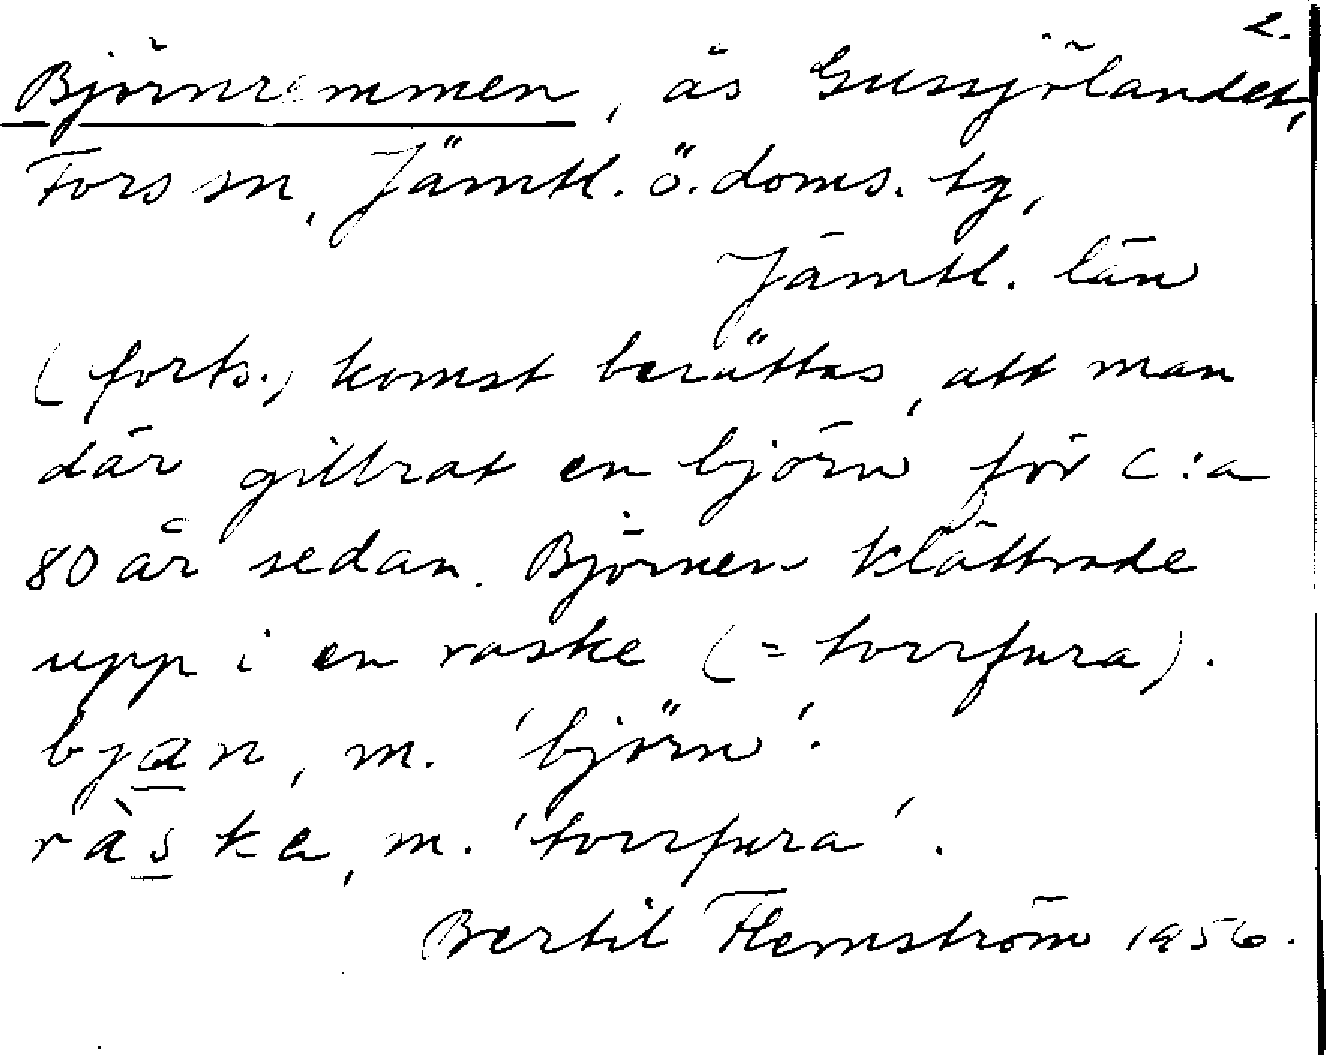 2.
Björnremmen, ås Gussjölandet,
Fors sn, Jämtl. ö. doms. tg,
Jämtl. län
(forts.) komst berättas, att man
där gillrat en björn för c:a
80 år sedan. Björnen klättrade
upp i en raske (= torrfura).
bjan, m. 'björn'.
ràska, m. 'torrfura'.
Bertil Flemström 1956.